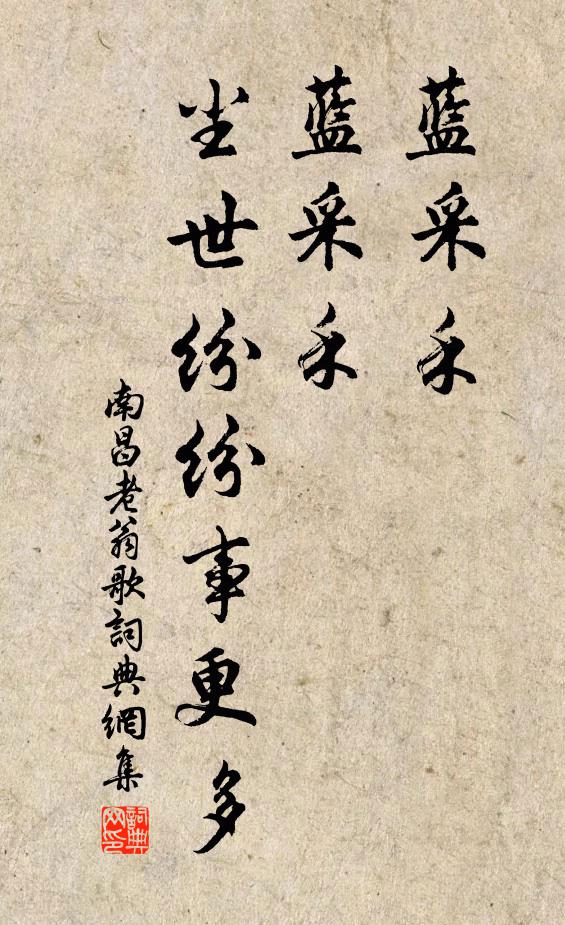 藍采禾
藍采禾
尘世紛紛事更多
南昌老翁歌詞典網集
詞典网印